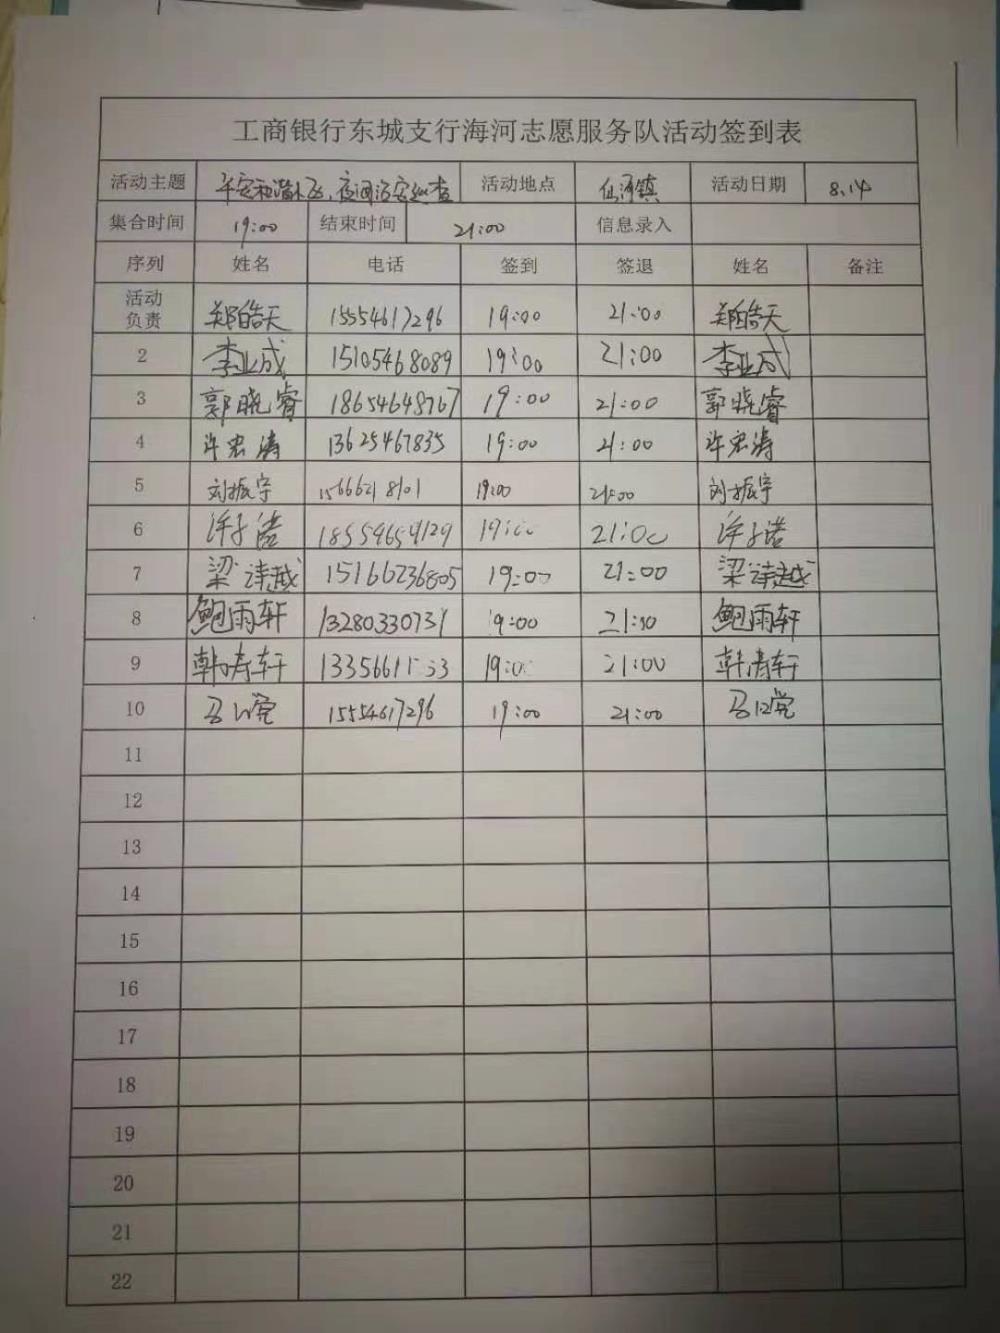 工商银行东城支行海河志愿服务队活动签到表
活动主题 平安和谐小区,夜间治安巡查 活动地点 仙河镇 活动日期 8.14
集合时间 19:00 结束时间 21:00 信息录入
序列 姓名 电话 签到 签退 姓名 备注
活动负责 郑皓天 15554617296 19:00 21:00 郑皓天
2 李业成 15105468089 19:00 21:00 李业成
3 郭晓睿 18654648767 19:00 21:00 郭晓睿
4 许宏涛 13625467835 19:00 21:00 许宏涛
5 刘振宇 15666218101 19:00 21:00 刘振宇
6 许子浩 18554654129 19:00 21:00 许子浩
7 梁诗越 15166236805 19:00 21:00 梁诗越
8 鲍雨轩 13280330731 9:00 21:10 鲍雨轩
9 韩寿轩 19:00 21:00 韩寿轩
10 15554617296 19:00 21:00
11
12
13
14
15
16
17
18
19
20
21
22